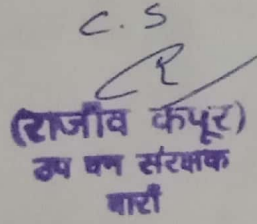 C. S
(राजीव कपूर)
उप वन संरक्षक
बारां